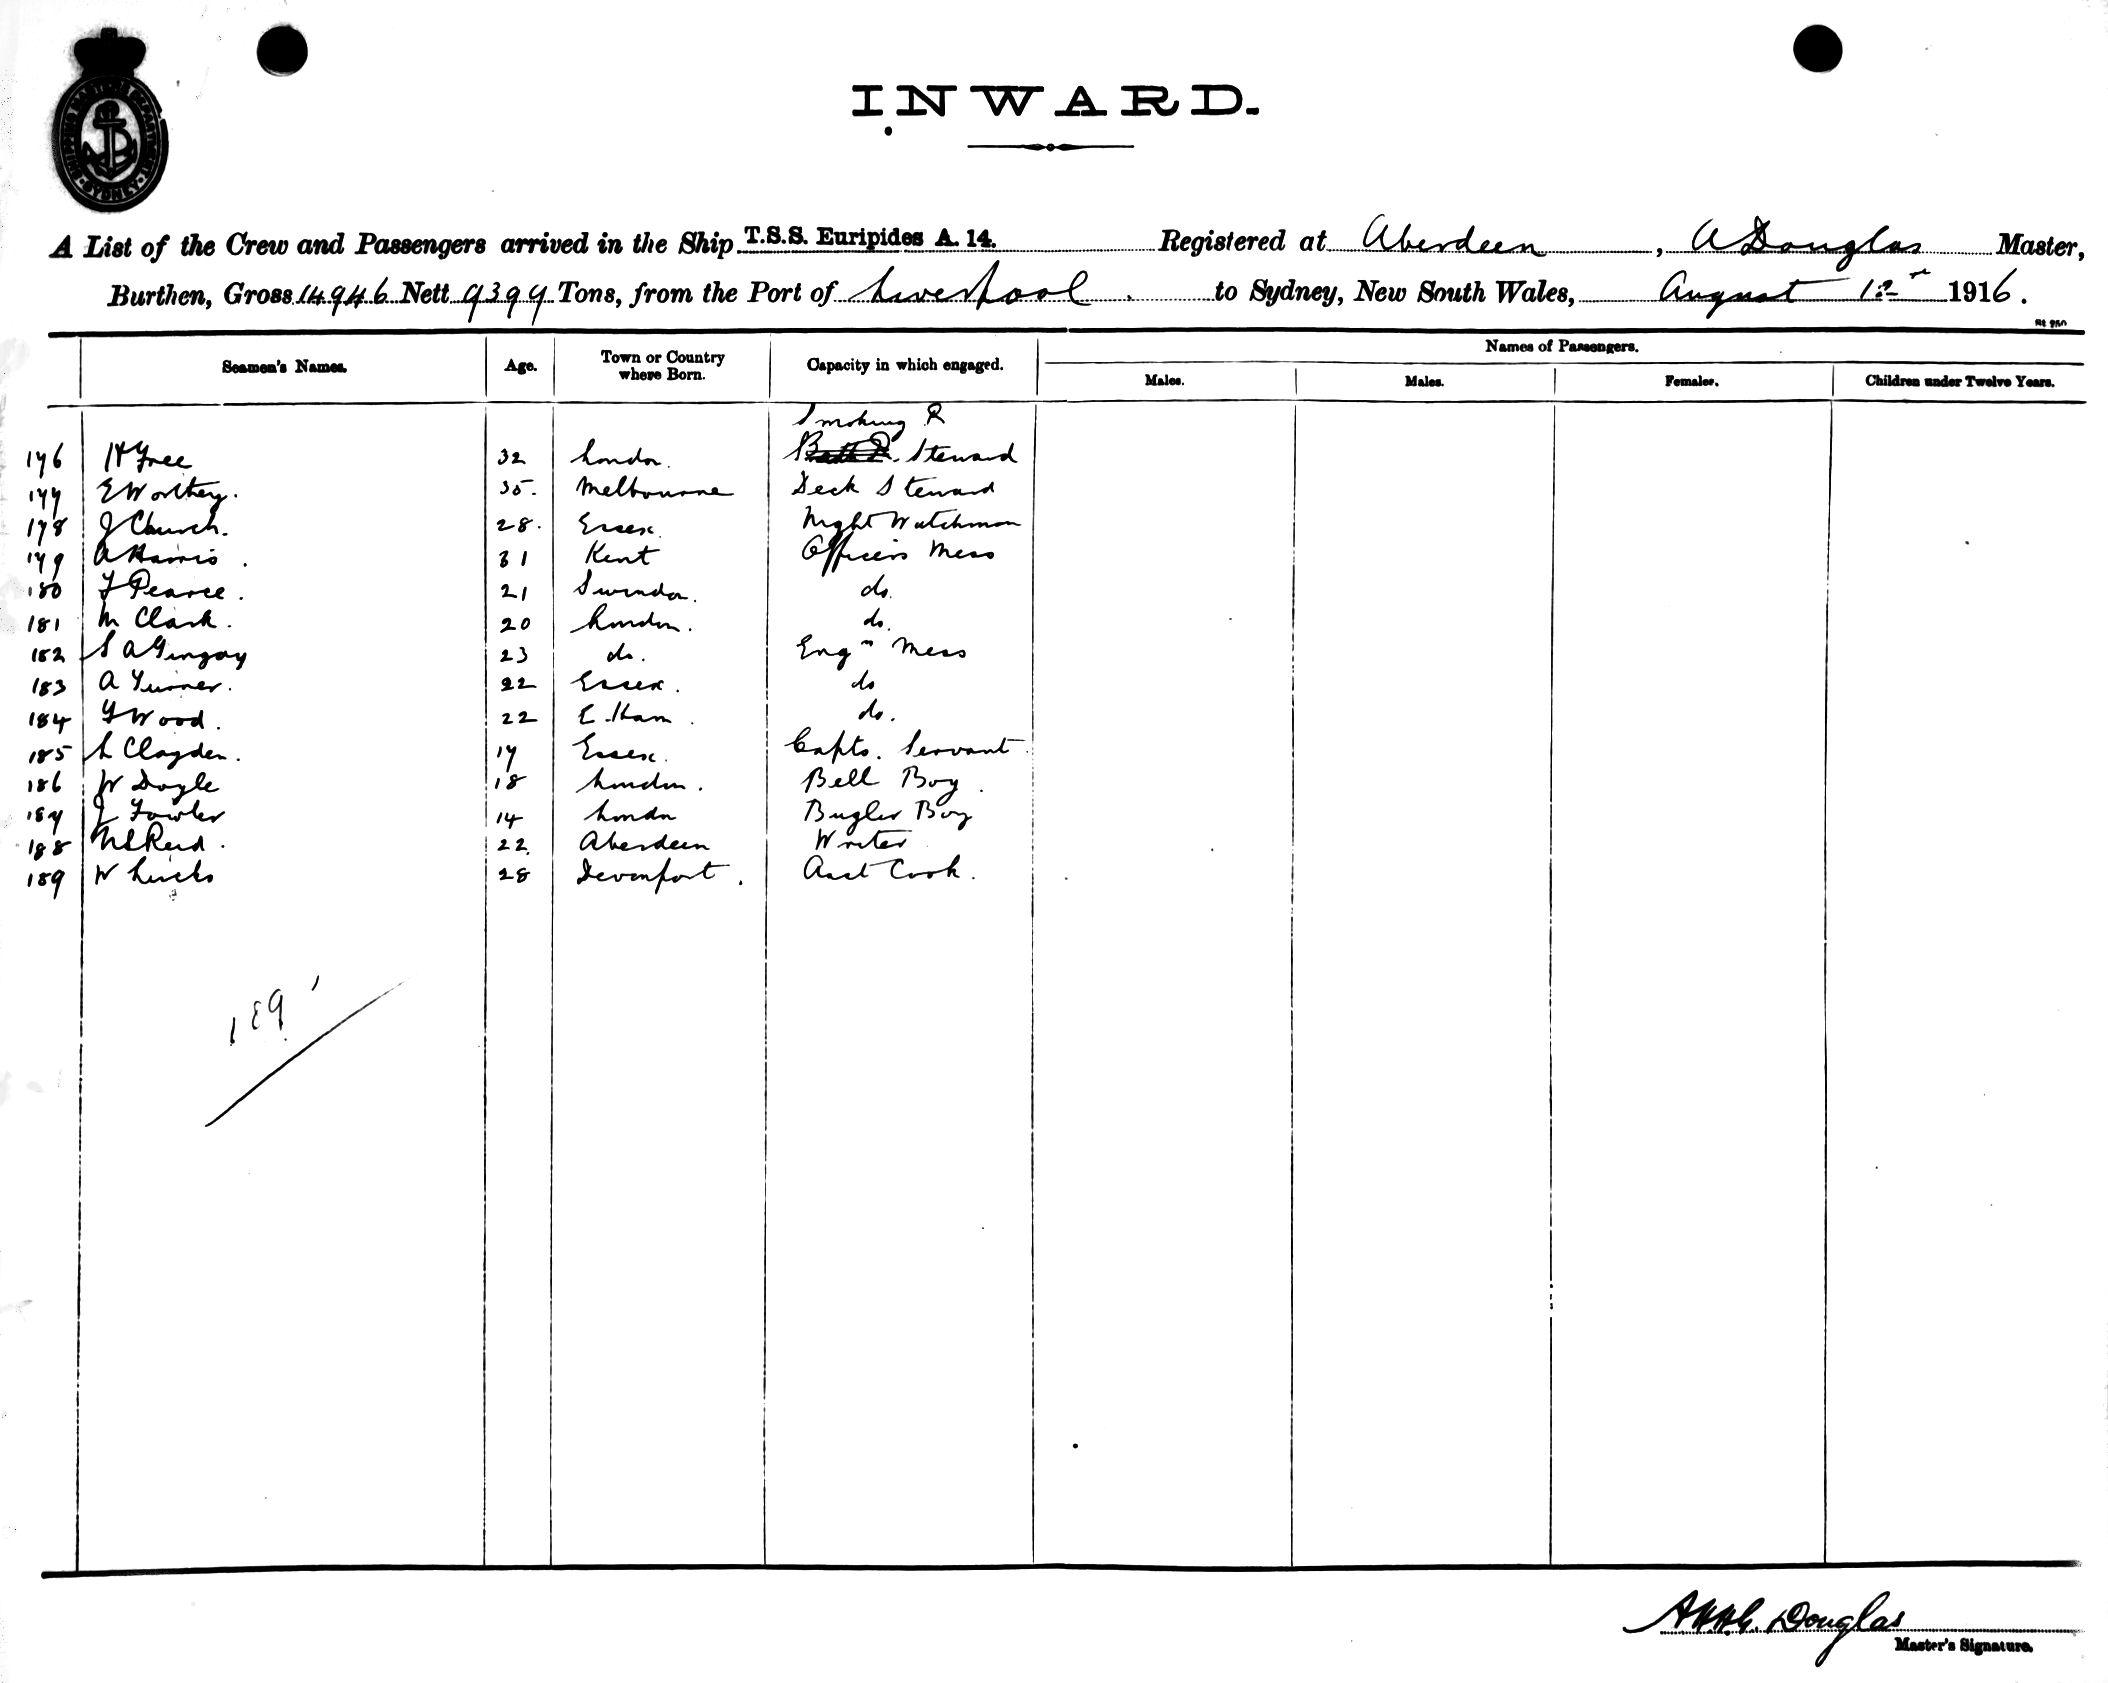 SHIPPING MASTER'S DEPARTMENT SYDNEY
INWARD.
A List of the Crew and Passengers arrived in the Ship T.S.S. Euripides A. 14. Registered at Aberdeen, A Douglas Master,
Burthen, Gross 14946 Nett 9399 Tons, from the Port of Liverpool to Sydney, New South Wales, August 12th 1916.
Seamen's Names. Age. Town or Country where Born. Capacity in which engaged. Names of Passengers.
Males. Males. Females. Children under Twelve Years.
Smoking R
176 H Free 32 London. Steward
177 E Worthey. 35. Melbourne Deck Steward
178 J Church. 28. Essex. Night Watchman
179 A Harris. 31 Kent Officers Mess
180 F Pearce. 21 Swindon. do.
181 M Clark. 20 London. do.
182 S A Gingay 23 do. Engrs Mess
183 A Turner. 22 Essex. do
184 F Wood. 22 E. Ham. do.
185 L Clayden. 17 Essex. Capts. Servant.
186 W Doyle 18 London. Bell Boy.
187 J Fowler 14 London Bugler Boy
188 Reid. 22. Aberdeen Writer
189 W 28 Devonport. Asst Cook.
189
Douglas
Master's Signature.